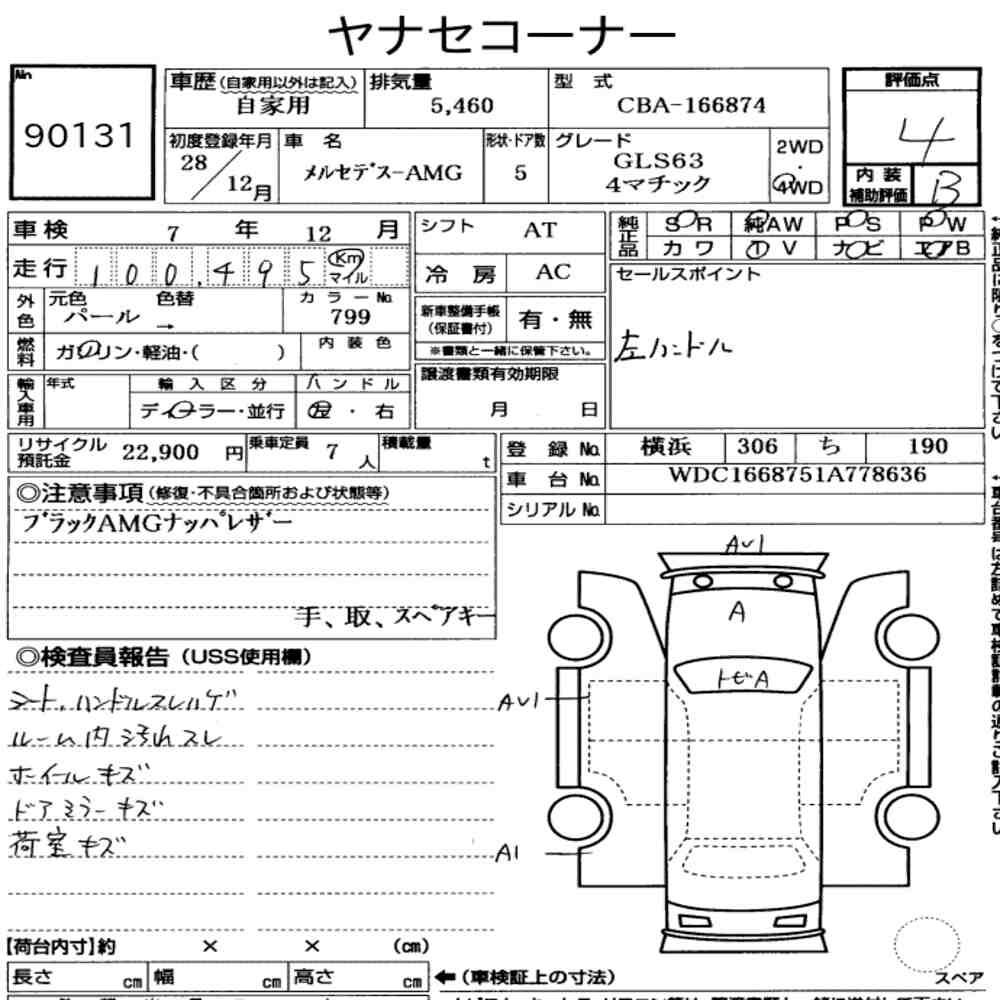 ヤナセコーナー
No. 90131
車歴(自家用以外は記入) 自家用
排気量 5,460
型 式 CBA-166874
評価点 4
初度登録年月 28/12月
車 名 メルセデス-AMG
形状・ドア数 5
グレード GLS63 4マチック
2WD・4WD
内装補助評価 B
車検 7 年 12 月
シフト AT
純正品 SR 純AW PS PW
カワ TV ナビ エアB
走行 100,495 Km マイル
冷房 AC
セールスポイント
左ハンドル
外色 元色 パール → 色替
カラーNo. 799
新車整備手帳(保証書付) 有・無
※書類と一緒に保管下さい。
燃料 ガソリン・軽油・( )
内装色
輸入車用 年式
輸入区分 ディーラー・並行
ハンドル 左・右
譲渡書類有効期限
月 日
リサイクル預託金 22,900 円
乗車定員 7 人
積載量 t
登録No. 横浜 306 ち 190
車台No. WDC1668751A778636
シリアルNo.
◎注意事項(修復・不具合箇所および状態等)
ブラックAMGナッパレザー
手、取、スペアキー
◎検査員報告(USS使用欄)
シート、ハンドルスレハゲ
ルーム内汚れスレ
ホイールキズ
ドアミラーキズ
荷室キズ
AU1
A
トビA
AU1
A1
【荷台内寸】約 × × (cm)
長さ cm 幅 cm 高さ cm
←(車検証上の寸法)
スペア